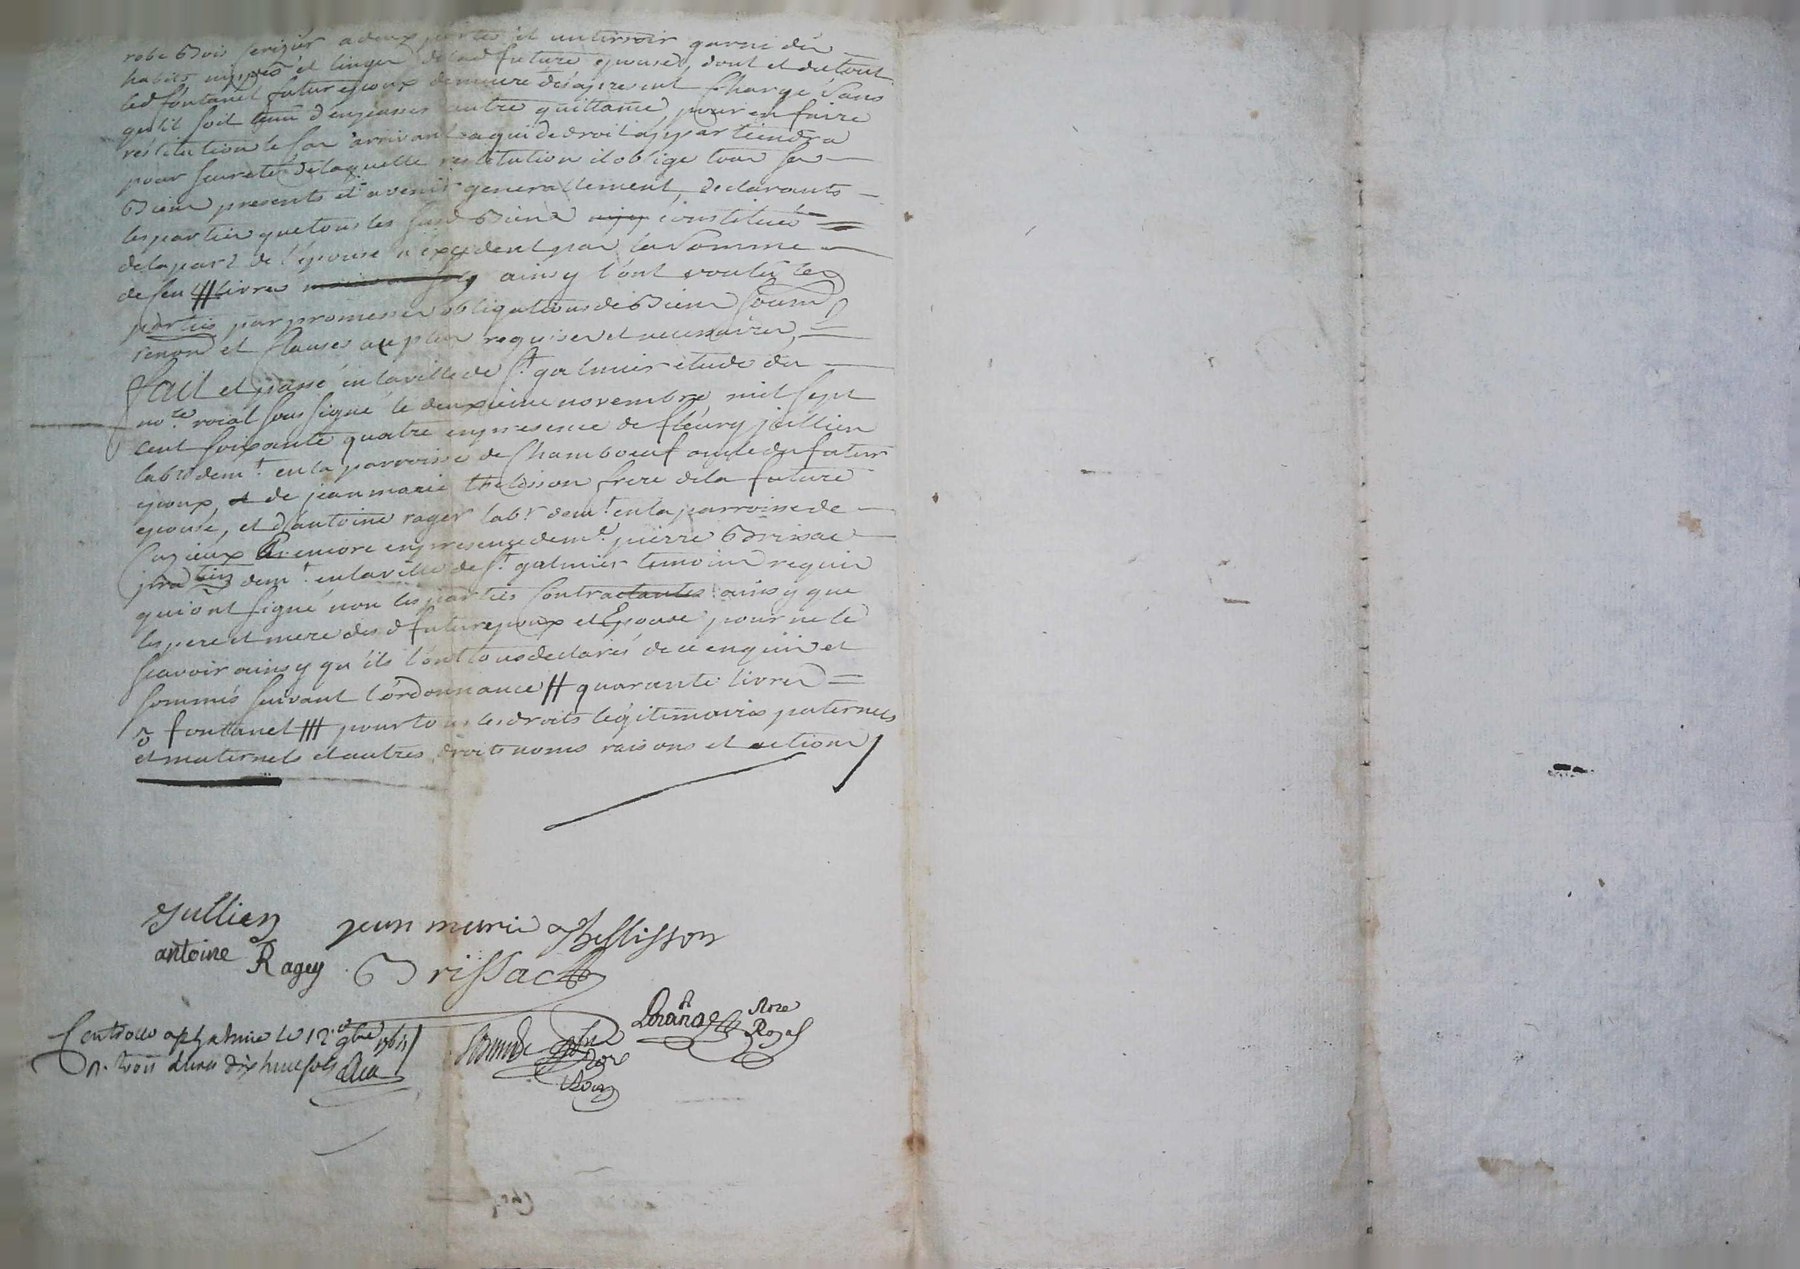 robe Bois serizier a deux portes et un tiroir garni des
habits nippes et linges de lad future epouse, dont et du tout
led fontanel futur epoux demeure des apresent Chargé Sans
quil soit tenu d'en passer autre quittance pour en faire
restitution le Cas arrivant a qui de droit appartiendra
pour seureté de laquelle restitution il oblige tous ses
Biens presents et avenir generallement, declarants
les parties que tous les susd Biens constitués
de la part de l'epouse n'excedent pas la Somme
de Cen # livres ainsy l'ont voulu les
parties par promesses obligations de Biens Soum
renon et Clauses au plus requises et necessaires,
fait et passé en la ville de St galmier etude du
nore roial Sous signé le deuxieme novembre mil Sept
cent soixante quatre en presence de fleury jullien
labr demt en la parroisse de Chambœuf oncle du futur
epoux, de jean marie thelisson frere de la future
epouse, et d'antoine ragey labr demt en la parroisse de
Cuzieux encore en presence de me pierre Brissac
praticien demt en la ville de St galmier temoins requis
qui ont signé non les parties Contractantes ainsy que
les pere et mere des d futur epoux et Epouse pour ne le
scavoir ainsy qu'ils l'ont tous declarés de ce enquis et
sommés suivant l'ordonnance # quarante livres
fontanel pour tous les droits légitimaires paternels
et maternels et autres droits noms raisons et actions
Jullien jean marie Thellisson
antoine Ragey Brissac
Controllé a St galmier le 12e 9bre 1764
R. trois livres dix huit sols
nore
Royal